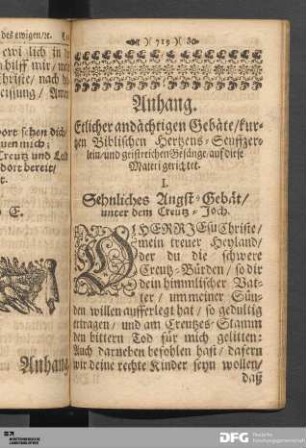 des ewigen/ꝛc.
ewiglich in
hilff mir/
Christe/ nach
heissung/ Amen
dort sehen dich/
auen mich;
Creutz und Leid
dort bereit/
t.
E.
Anhang
)( 715 )(
Anhang.
Etlicher andächtigen Gebäte/ kur-
tzen Biblischen Hertzens-Seufftzer-
lein/ und geistreichen Gesänge/ auf diese
Materi gerichtet.
I.
Sehnliches Angst-Gebät/
unter dem Creutz-Joch.
O HERR JEsu Christe/
mein treuer Heyland/
der du die schwere
Creutz-Bürden/ so dir
dein himmlischer Vat-
ter/ um meiner Sün-
den willen aufferlegt hat/ so gedultig
ertragen/ und am Creutzes-Stamm
den bittern Tod für mich gelitten:
Auch darneben befohlen hast/ dafern
wir deine rechte Kinder seyn wollen/
daß
DFG